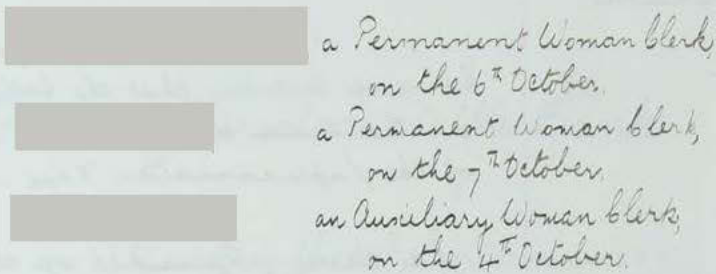 a Permanent Woman Clerk,
on the 6th October.
a Permanent Woman Clerk,
on the 7th October.
an Auxiliary Woman Clerk,
on the 4th October.